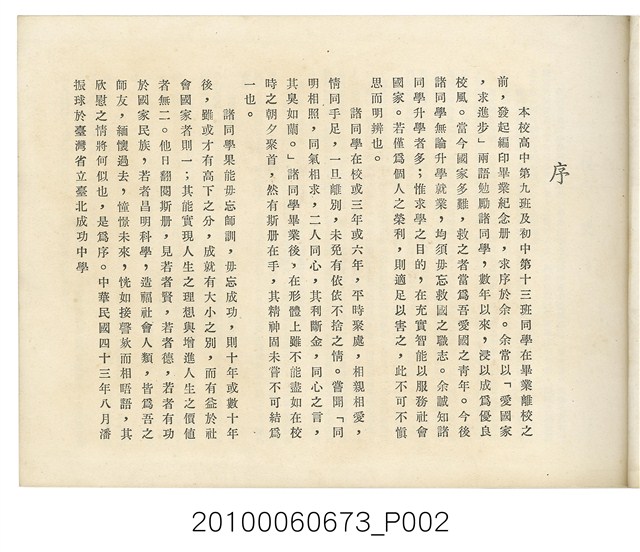 序
本校高中第九班及初中第十三班同學在畢業離校之
前，發起編印畢業紀念册，求序於余。余常以「愛國家
，求進步」兩語勉勵諸同學，數年以來，浸以成爲優良
校風。當今國家多難，救之者當爲吾愛國之青年。今後
諸同學無論升學就業，均須毋忘救國之職志。余誠知諸
同學升學者多；惟求學之目的，在充實智能以服務社會
國家。若僅爲個人之榮利，則適足以害之，此不可不愼
思而明辨也。
諸同學在校或三年或六年，平時聚處，相親相愛，
情同手足，一旦離別，未免有依依不捨之情。嘗聞「同
明相照，同氣相求，二人同心，其利斷金，同心之言，
其臭如蘭。」諸同學畢業後，在形體上雖不能盡如在校
時之朝夕聚首，然有斯册在手，其精神固未嘗不可結爲
一也。
諸同學果能毋忘師訓，毋忘成功，則十年或數十年
後，雖或才有高下之分，成就有大小之別，而有益於社
會國家者則一；其能實現人生之理想與增進人生之價値
者無二。他日翻閱斯册，見若者賢，若者德，若者有功
於國家民族，若者昌明科學，造福社會人類，皆爲吾之
師友，緬懷過去，憧憬未來，恍如接謦欬而相晤語，其
欣慰之情將何似也，是爲序。中華民國四十三年八月潘
振球於臺灣省立臺北成功中學
20100060673_P002